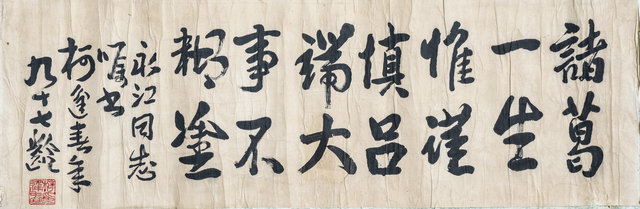 諸葛
一生
惟謹
慎呂
端大
事不
糊塗
永江同志
嘱书
柯逢春年
九十七齡